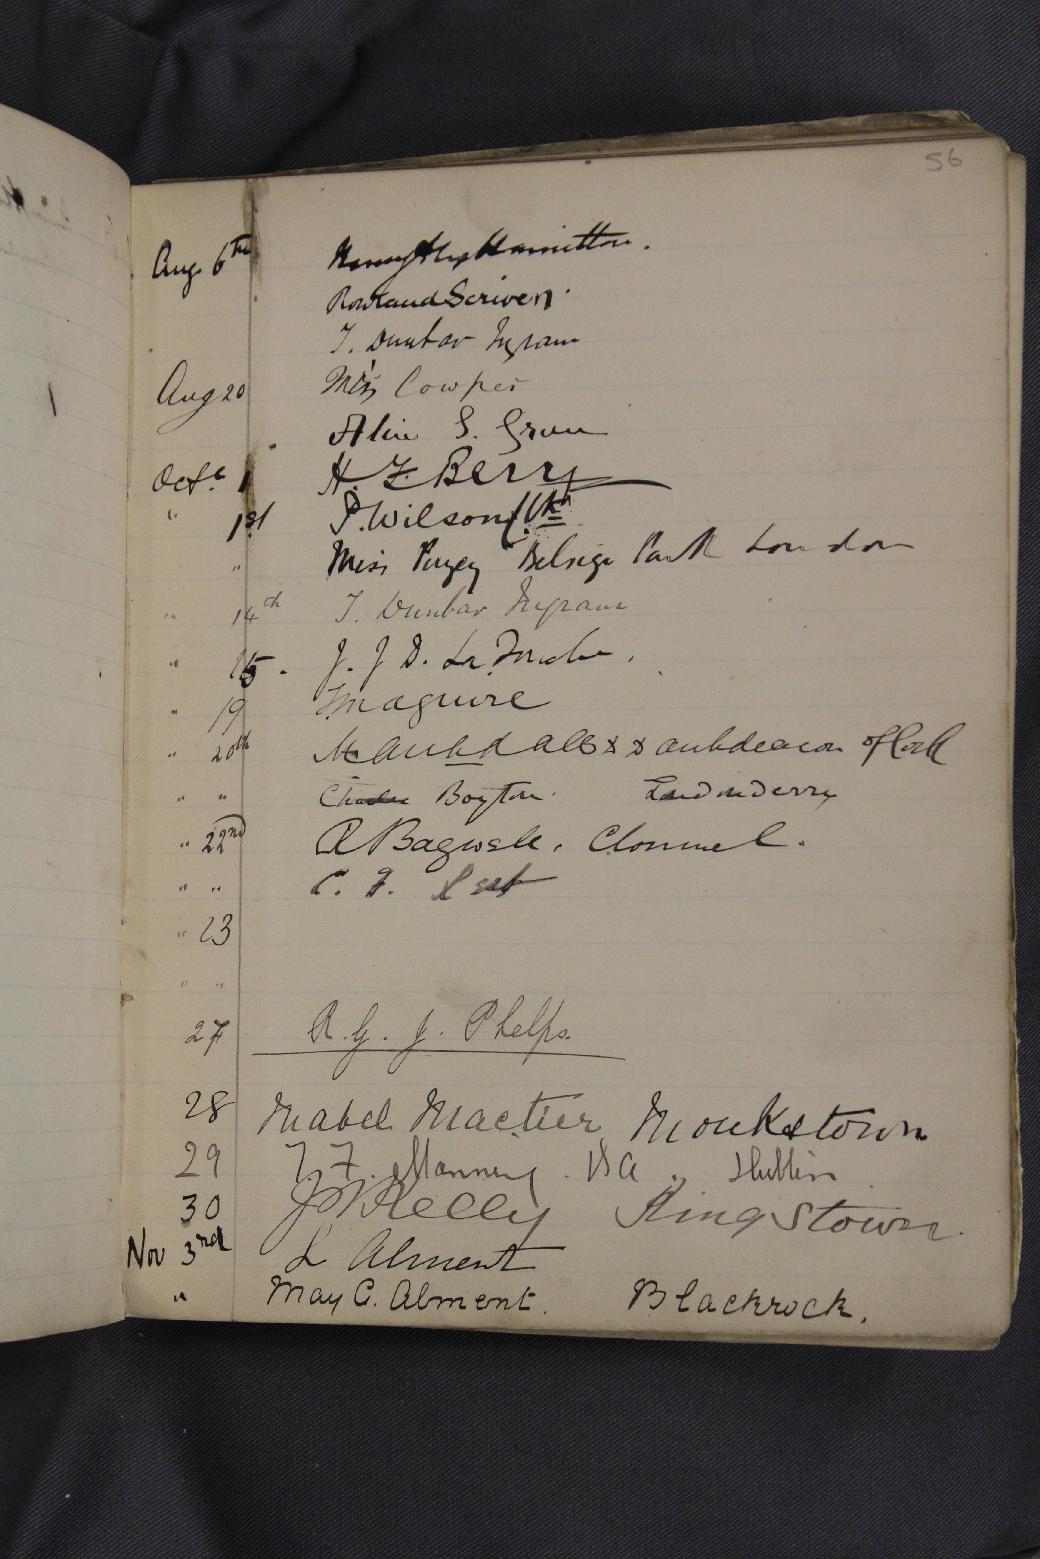 56
Aug 6th Hamilton.
Rowland Scriven.
T. Dunbar Ingram
Aug 20 Miss Cowper
Alice S. Green
Octr. 1 H. F Berry
" 1st P. Wilson
" Miss Belsize Park London
" 14th T. Dunbar Ingram
" 15. J. J D. La Touche.
" 19 Maguire
" 20th archdeacon of Cork
" " Charles Boyton. Londonderry
" 22nd R Bagwell. Clonmel.
" " C. F.
" 23
" "
27 R. G. J. Phelps.
28 Mabel Mactier Monkstown
29 Manning. BA. Dublin
30 Kelly Kingstown.
Nov 3rd L Alment
" May C. Alment. Blackrock.